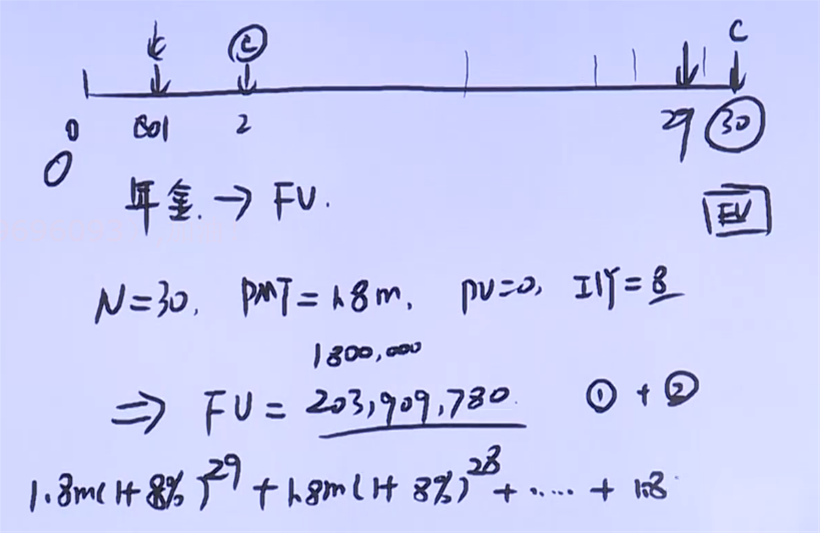 C C C
0 01 2 29 30
0
年金. → FV. FV
N=30, PMT=1.8m, PV=0, I/Y=8
1800,000
⇒ FV = 203,909,780. ① + ②
1.8m(1+8%)^29 + 1.8m(1+8%)^28 + ..... + 1.8